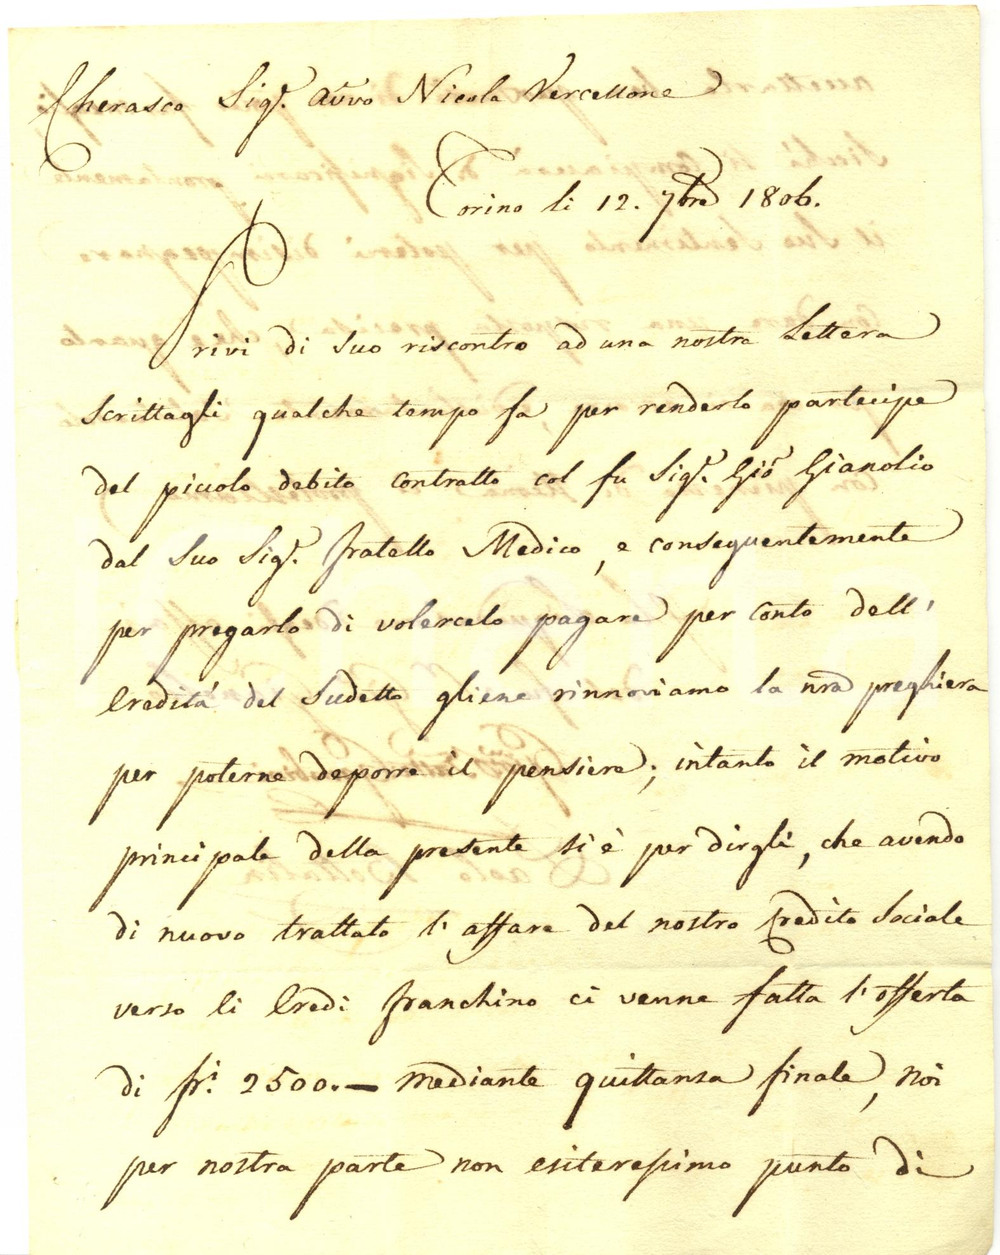 Cherasco Sigr. Avvo Nicola Vercellone
Torino li 12. 7bre 1806.
Privi di suo riscontro ad una nostra Lettera
Scrittagli qualche tempo fa, per renderlo partecipe
del picolo debito contratto col fu Sigr. Gio Gianolio
dal Suo Sigr. fratello Medico, e conseguentemente
per pregarlo di volercelo pagare per conto dell'
Eredità del Sudetto gliene rinnoviamo la nra preghiera
per poterne deporre il pensiere; intanto il motivo
principale della presente si è per dirgli, che avendo
di nuovo trattato l'affare del nostro Credito Sociale
verso li Eredi franchino ci venne fatta l'offerta
di fri. 2500.— mediante quittanza finale, noi
per nostra parte non esiteressimo punto di